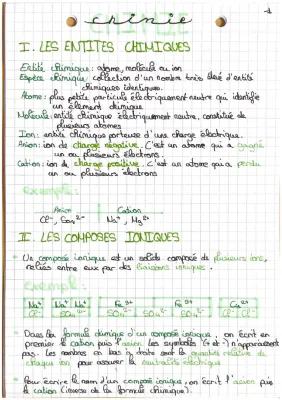 chimie
I. LES ENTITES CHIMIQUES
Entité chimique : atome, molécule ou ion
Espèce chimique : collection d'un nombre très élevé d'entité
chimiques identiques.
Atome : plus petite particule électriquement neutre qui identifie
un élément chimique
Molécule : entité chimique électriquement neutre, constituée de
plusieurs atomes
Ion : entité chimique porteuse d'une charge électrique.
Anion : ion de charge négative. C'est un atome qui a gagné
un ou plusieurs électrons.
Cation : ion de charge positive. c'est un atome qui a perdu
un ou plusieurs électrons
exemple :
Anion Cation
II. LES COMPOSES IONIQUES
Un composé ionique est un solide composé de plusieurs ions,
reliés entre eux par des liaisons ioniques.
Exemple :
Dans la formule chimique d'un composé ionique, on écrit en
premier le cation puis l'anion. Les symboles (+ et -) n'apparaissent
pas. Les nombres en bas à droite sont la quantité relative de
chaque ion pour assurer la neutralité électrique
Pour écrire le nom d'un composé ionique, on écrit l'anion puis
le cation (inverse de la formule chimique).